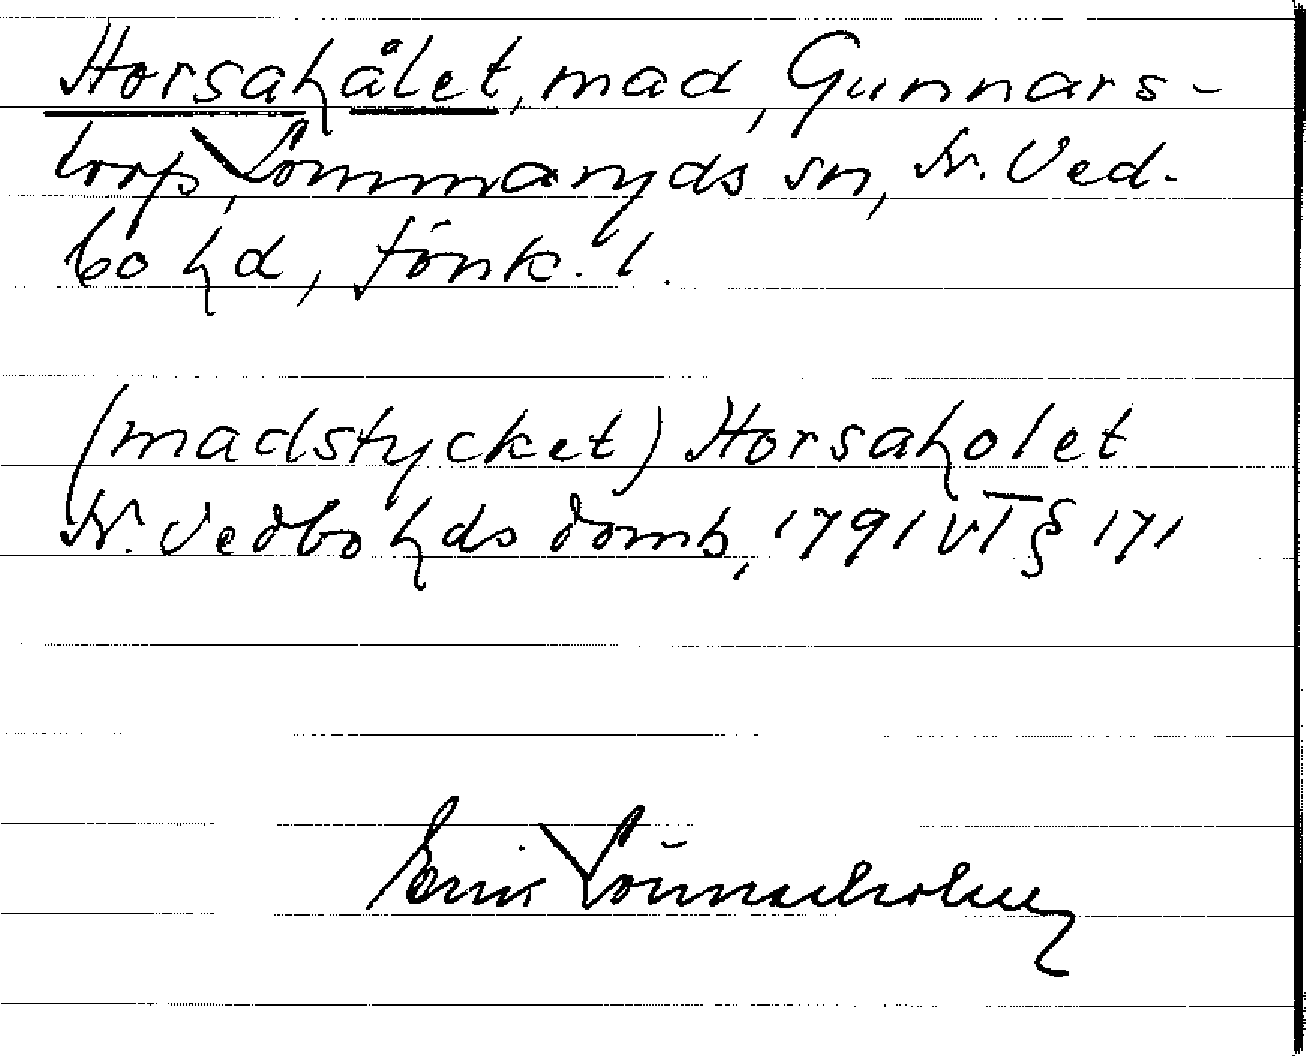 Horsahålet, mad, Gunnars-
torp, Lommaryds sn, N. Ved-
bo hd, Jönk. l.
(madstycket) Horsaholet
N. Vedbo hds domb, 1791 VT § 171
Erik Lönnerholm